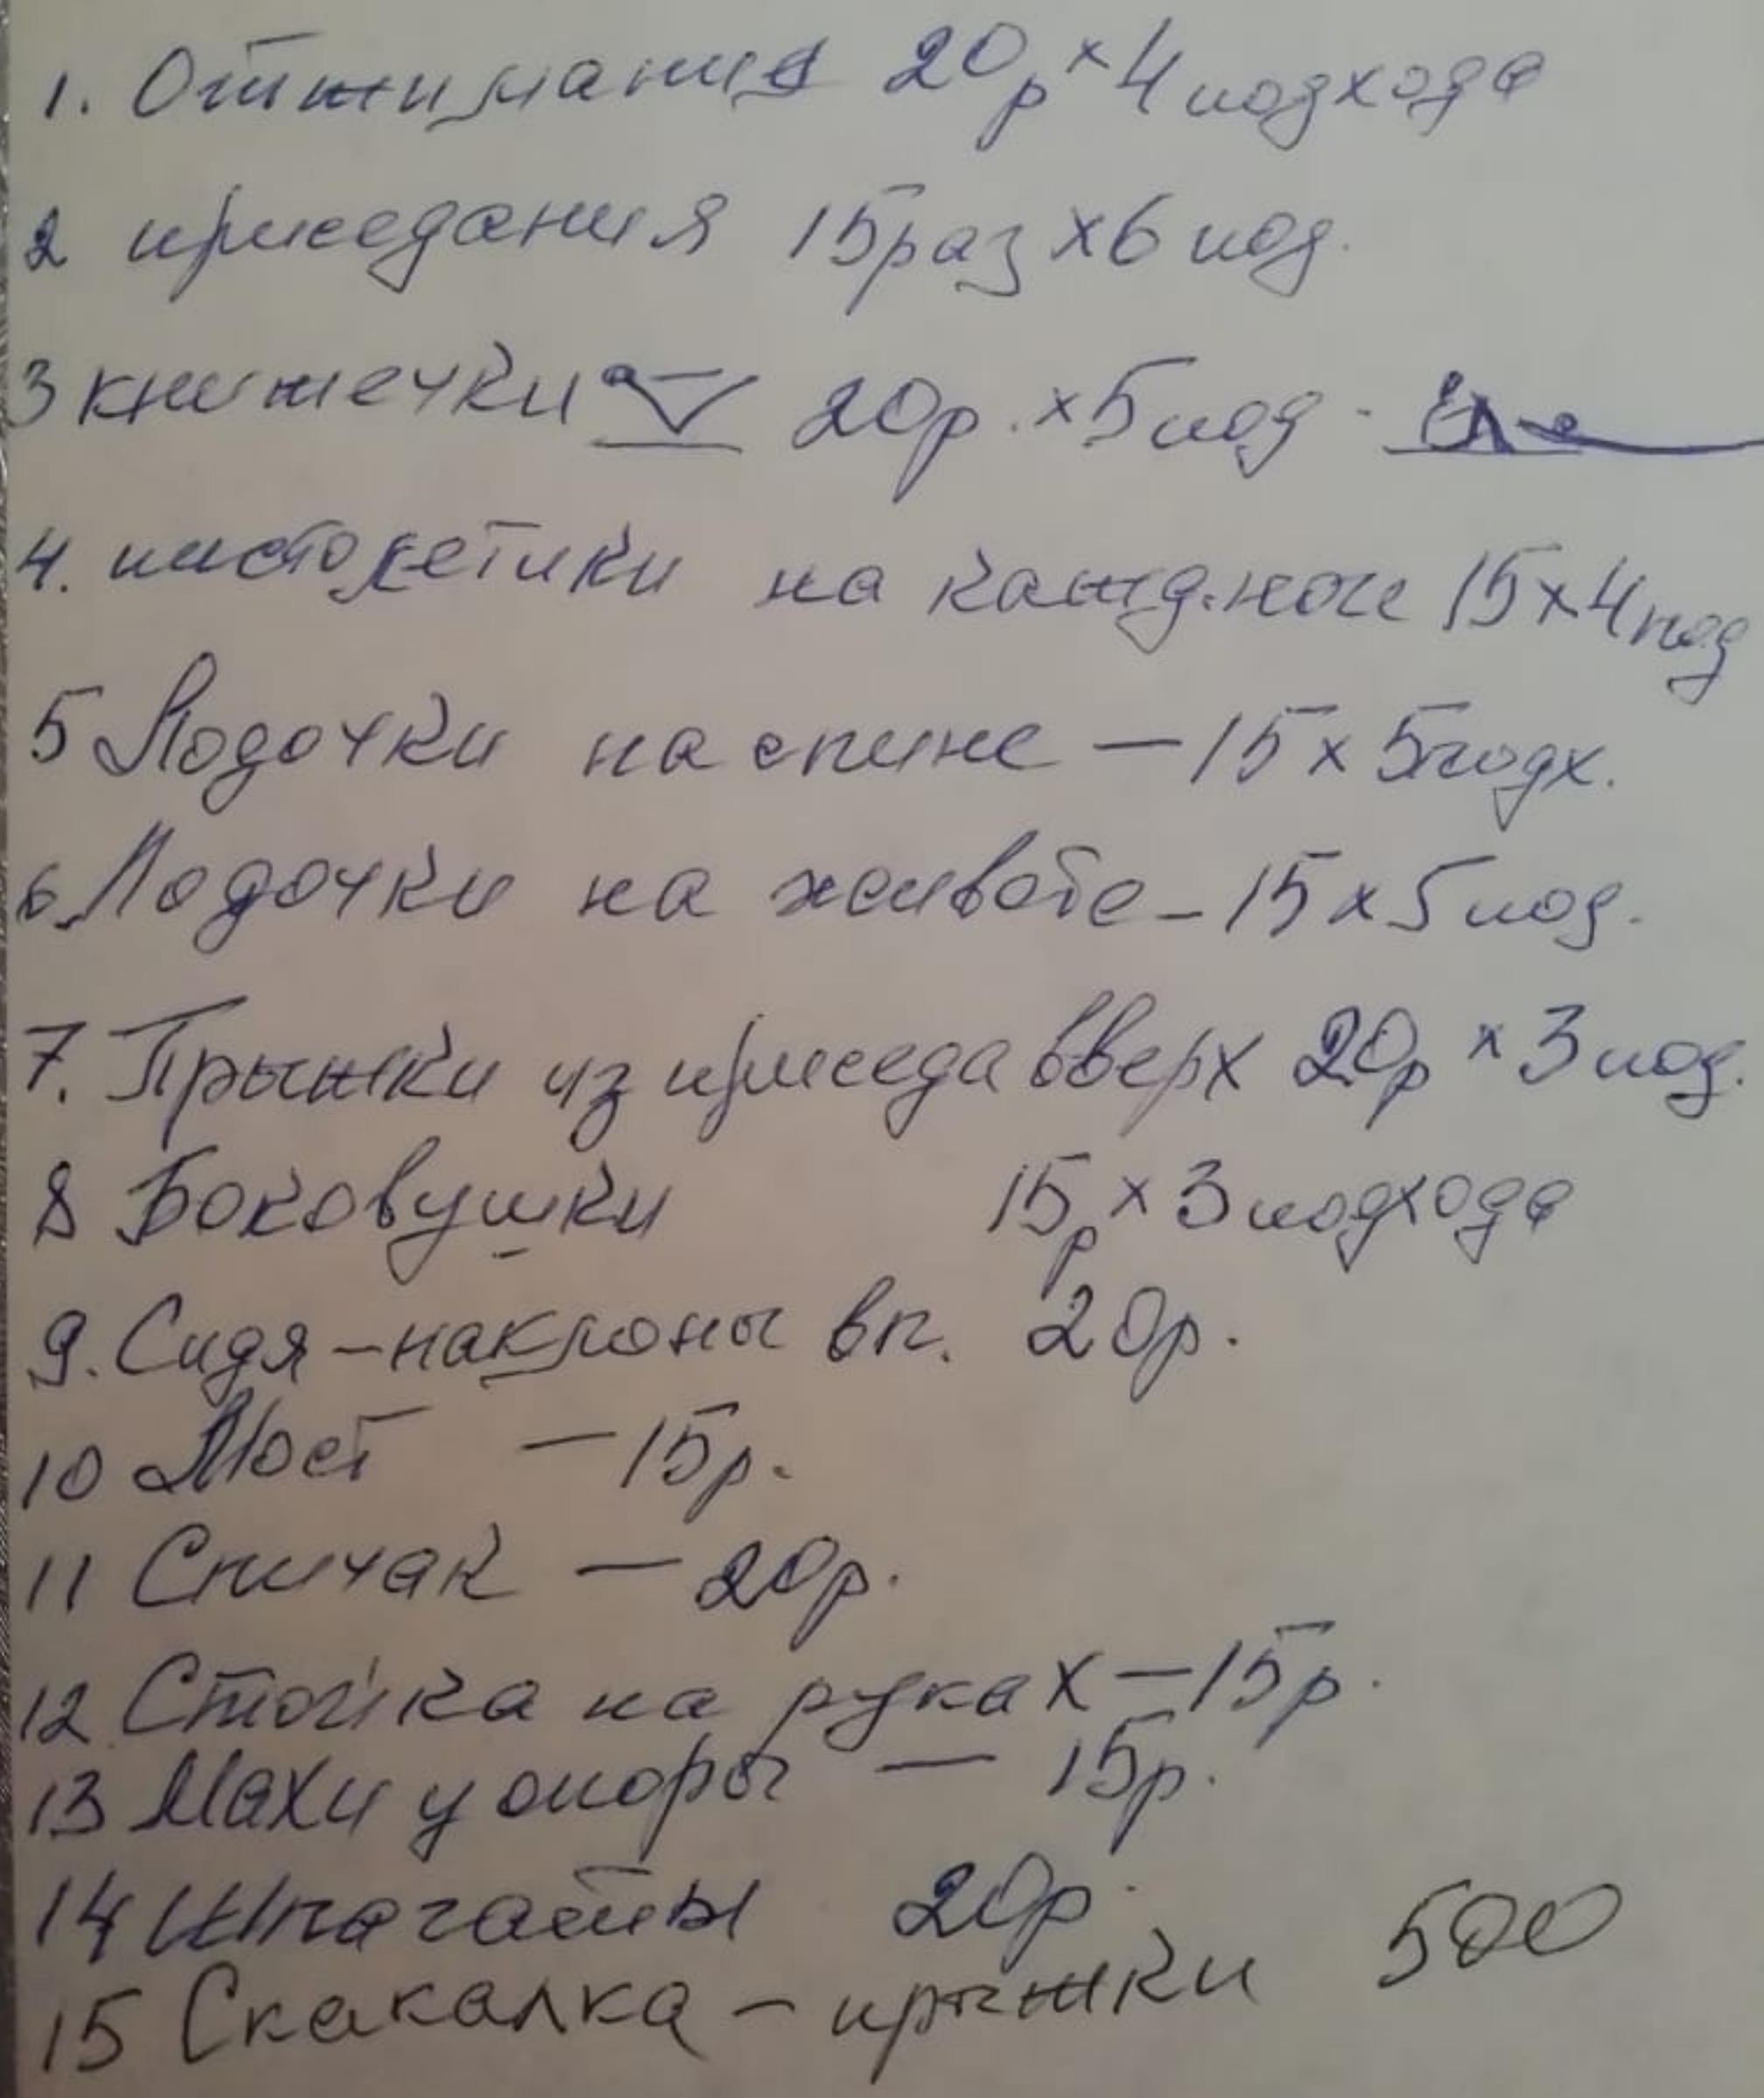 1. Отжимания 20р х 4 подхода
2 приседания 15раз х6 под.
3 книжечки 20р. х5 под.
4. пистолетики на кажд.ноге 15х4под
5 Лодочки на спине — 15 х 5подх.
6 Лодочки на животе – 15 х 5 под.
7. Прыжки из приседа вверх 20р х 3 под.
8 Боковушки 15р х 3 подхода
9. Сидя – наклоны вп. 20р.
10 Мост — 15р.
11 Спичак — 20р.
12 Стойка на руках — 15р.
13 Махи у опоры — 15р.
14 Шпагаты 20р.
15 Скакалка – прыжки 500